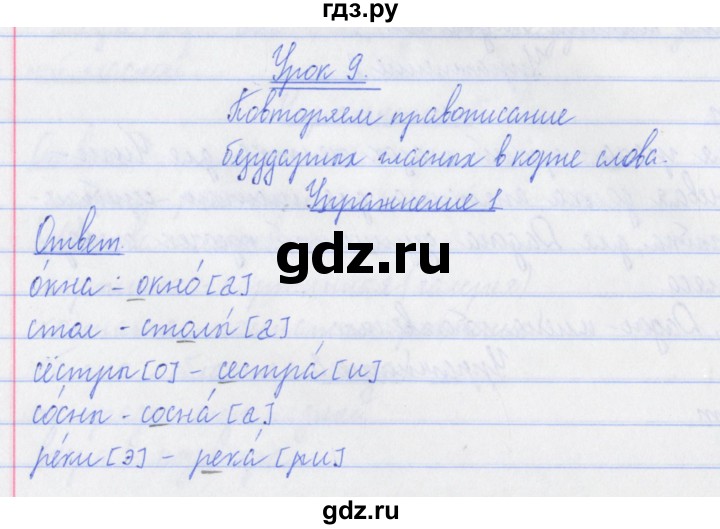 гдз.ру
Урок 9.
Повторяем правописание
безударных гласных в корне слова.
Упражнение 1
Ответ.
о́кна - окно́ [а]
gdz.ru
стол - столы́ [а]
сёстры [о] - сестра́ [и]
со́сны - сосна́ [а]
ре́ки [э] - река́ [ри]
gdz.ru